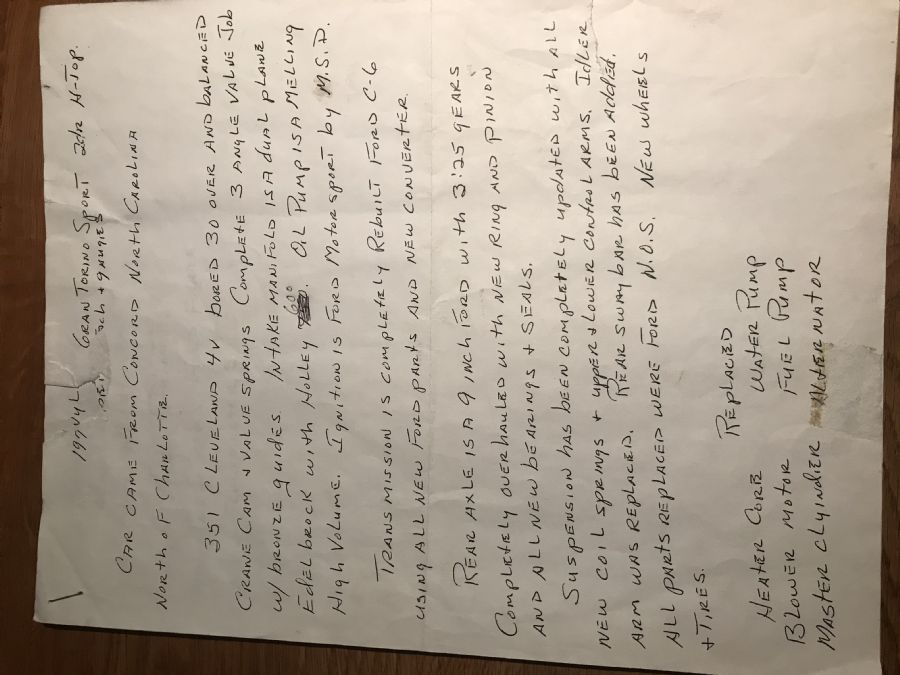 GRAN TORINO SPORT 2dr H-Top.
tach + gauges
CAR CAME FROM CONCORD NORTH CAROLINA
NORTH OF CHARLOTTE
351 CLEVELAND 4V BORED 30 OVER AND BALANCED
CRANE CAM + VALVE SPRINGS COMPLETE 3 ANGLE VALVE JOB
W/ BRONZE guides. INTAKE MANIFOLD IS A DUAL PLANE
EDELBROCK WITH HOLLEY 600. OIL PUMP IS A MELLING
HIGH VOLUME. IGNITION IS FORD MOTORSPORT by M.S.D.
TRANSMISSION IS COMPLETELY REBUILT FORD C-6
USING ALL NEW FORD PARTS AND NEW CONVERTER.
REAR AXLE IS A 9 INCH FORD WITH 3:25 GEARS
COMPLETELY OVERHAULED WITH NEW RING AND PINION
AND ALL NEW BEARINGS + SEALS.
SUSPENSION HAS BEEN COMPLETELY UPDATED WITH ALL
NEW COIL SPRINGS + UPPER + LOWER CONTROL ARMS. IDLER
ARM WAS REPLACED. REAR SWAY BAR HAS BEEN ADDED.
ALL PARTS REPLACED WERE FORD N.O.S. NEW WHEELS
+ TIRES.
REPLACED
HEATER CORE WATER PUMP
BLOWER MOTOR FUEL PUMP
MASTER CLYINDER ALTERNATOR